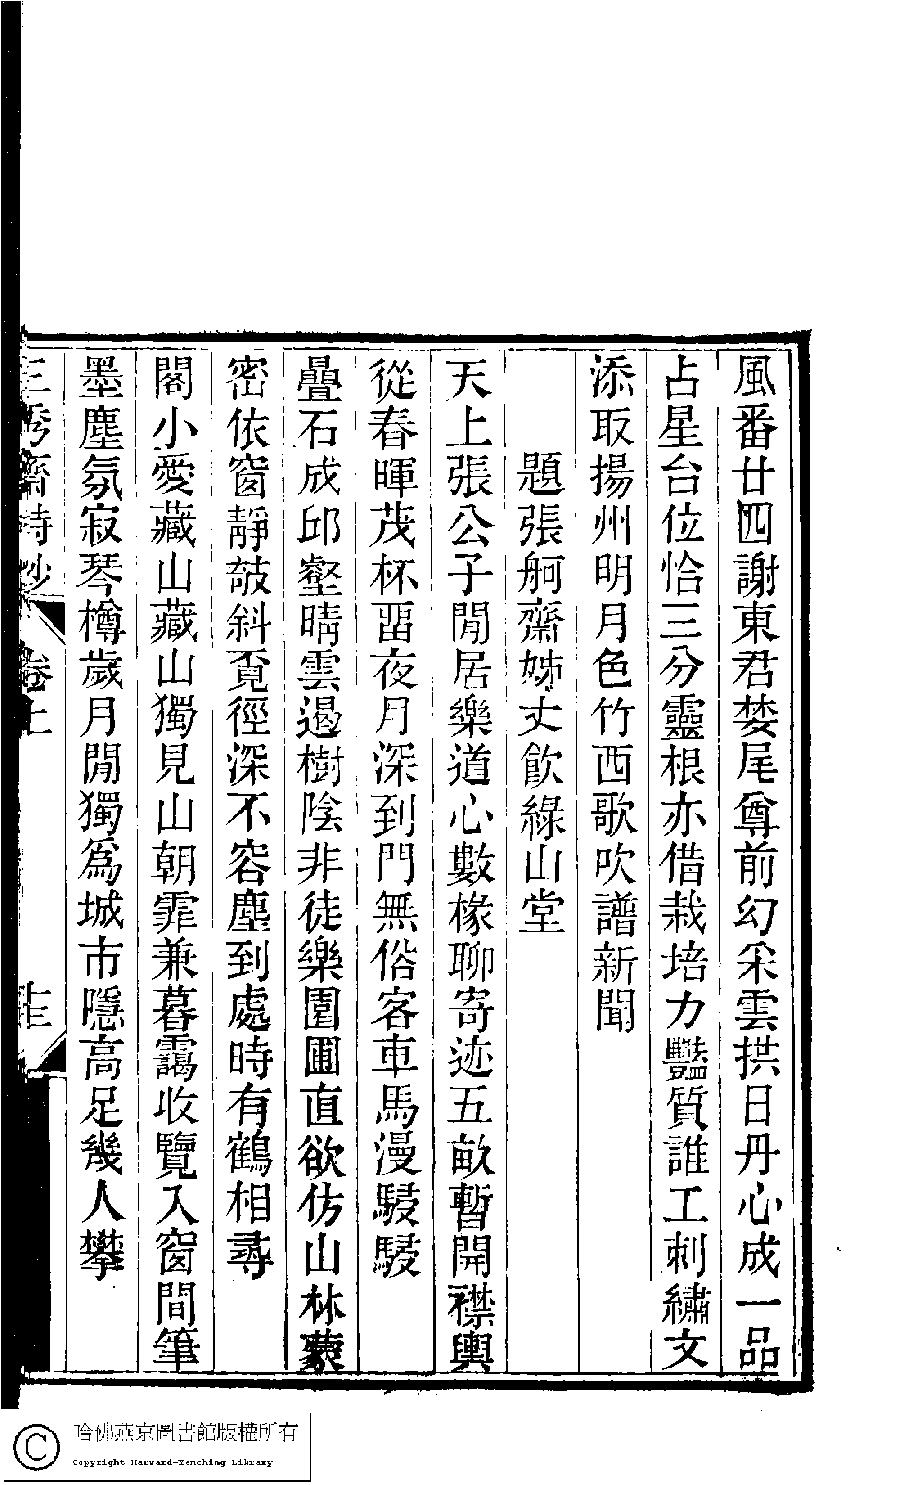 風番廿四謝東君婪尾尊前幻采雲拱日丹心成一品
占星台位恰三分靈根亦借栽培力豔質誰工刺繡文
添取揚州明月色竹西歌吹譜新聞
題張舸齋姊丈飮綠山堂
天上張公子閒居樂道心數椽聊寄迹五畝暫開襟輿
從春暉茂杯畱夜月深到門無俗客車馬漫駸駸
疊石成邱壑晴雲遏樹陰非徒樂園圃直欲仿山林蒙
密依窗靜攲斜覓徑深不容塵到處時有鶴相尋
閣小愛藏山藏山獨見山朝霏兼暮靄收覽入窗間筆
墨塵氛寂琴樽歲月閒獨爲城市隱高足幾人攀
三秀齋詩鈔 卷上
哈佛燕京圖書館版權所有
Copyright Harvard-Yenching Library